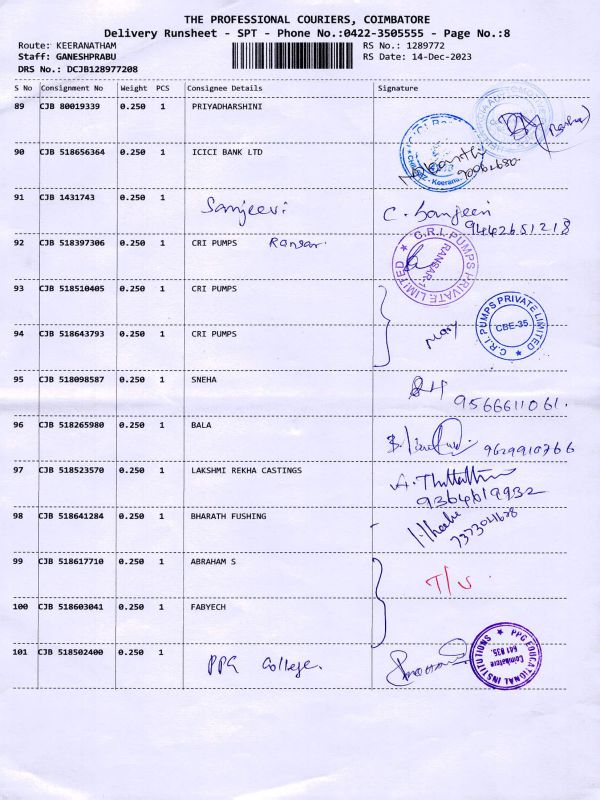 THE PROFESSIONAL COURIERS, COIMBATORE
Delivery Runsheet - SPT - Phone No.:0422-3505555 - Page No.:8
Route: KEERANATHAM RS No.: 1289772
Staff: GANESHPRABU RS Date: 14-Dec-2023
DRS No.: DCJB128977208
S No Consignment No Weight PCS Consignee Details Signature
89 CJB 80019339 0.250 1 PRIYADHARSHINI
90 CJB 518656364 0.250 1 ICICI BANK LTD
91 CJB 1431743 0.250 1 Sanjeevi C. Sanjeevi
9442651218
92 CJB 518397306 0.250 1 CRI PUMPS Ransar. C.R.I. PUMPS PRIVATE LIMITED RANSAR-1
93 CJB 518510405 0.250 1 CRI PUMPS
94 CJB 518643793 0.250 1 CRI PUMPS Mary C.R.I. PUMPS PRIVATE LIMITED CBE-35
95 CJB 518098587 0.250 1 SNEHA
9566611061.
96 CJB 518265980 0.250 1 BALA 9629910766
97 CJB 518523570 0.250 1 LAKSHMI REKHA CASTINGS
9364619932
98 CJB 518641284 0.250 1 BHARATH FUSHING
99 CJB 518617710 0.250 1 ABRAHAM S T/S.
100 CJB 518603041 0.250 1 FABYECH
101 CJB 518502400 0.250 1 PPG College. PPG EDUCATIONAL INSTITUTIONS Coimbatore 641 035.